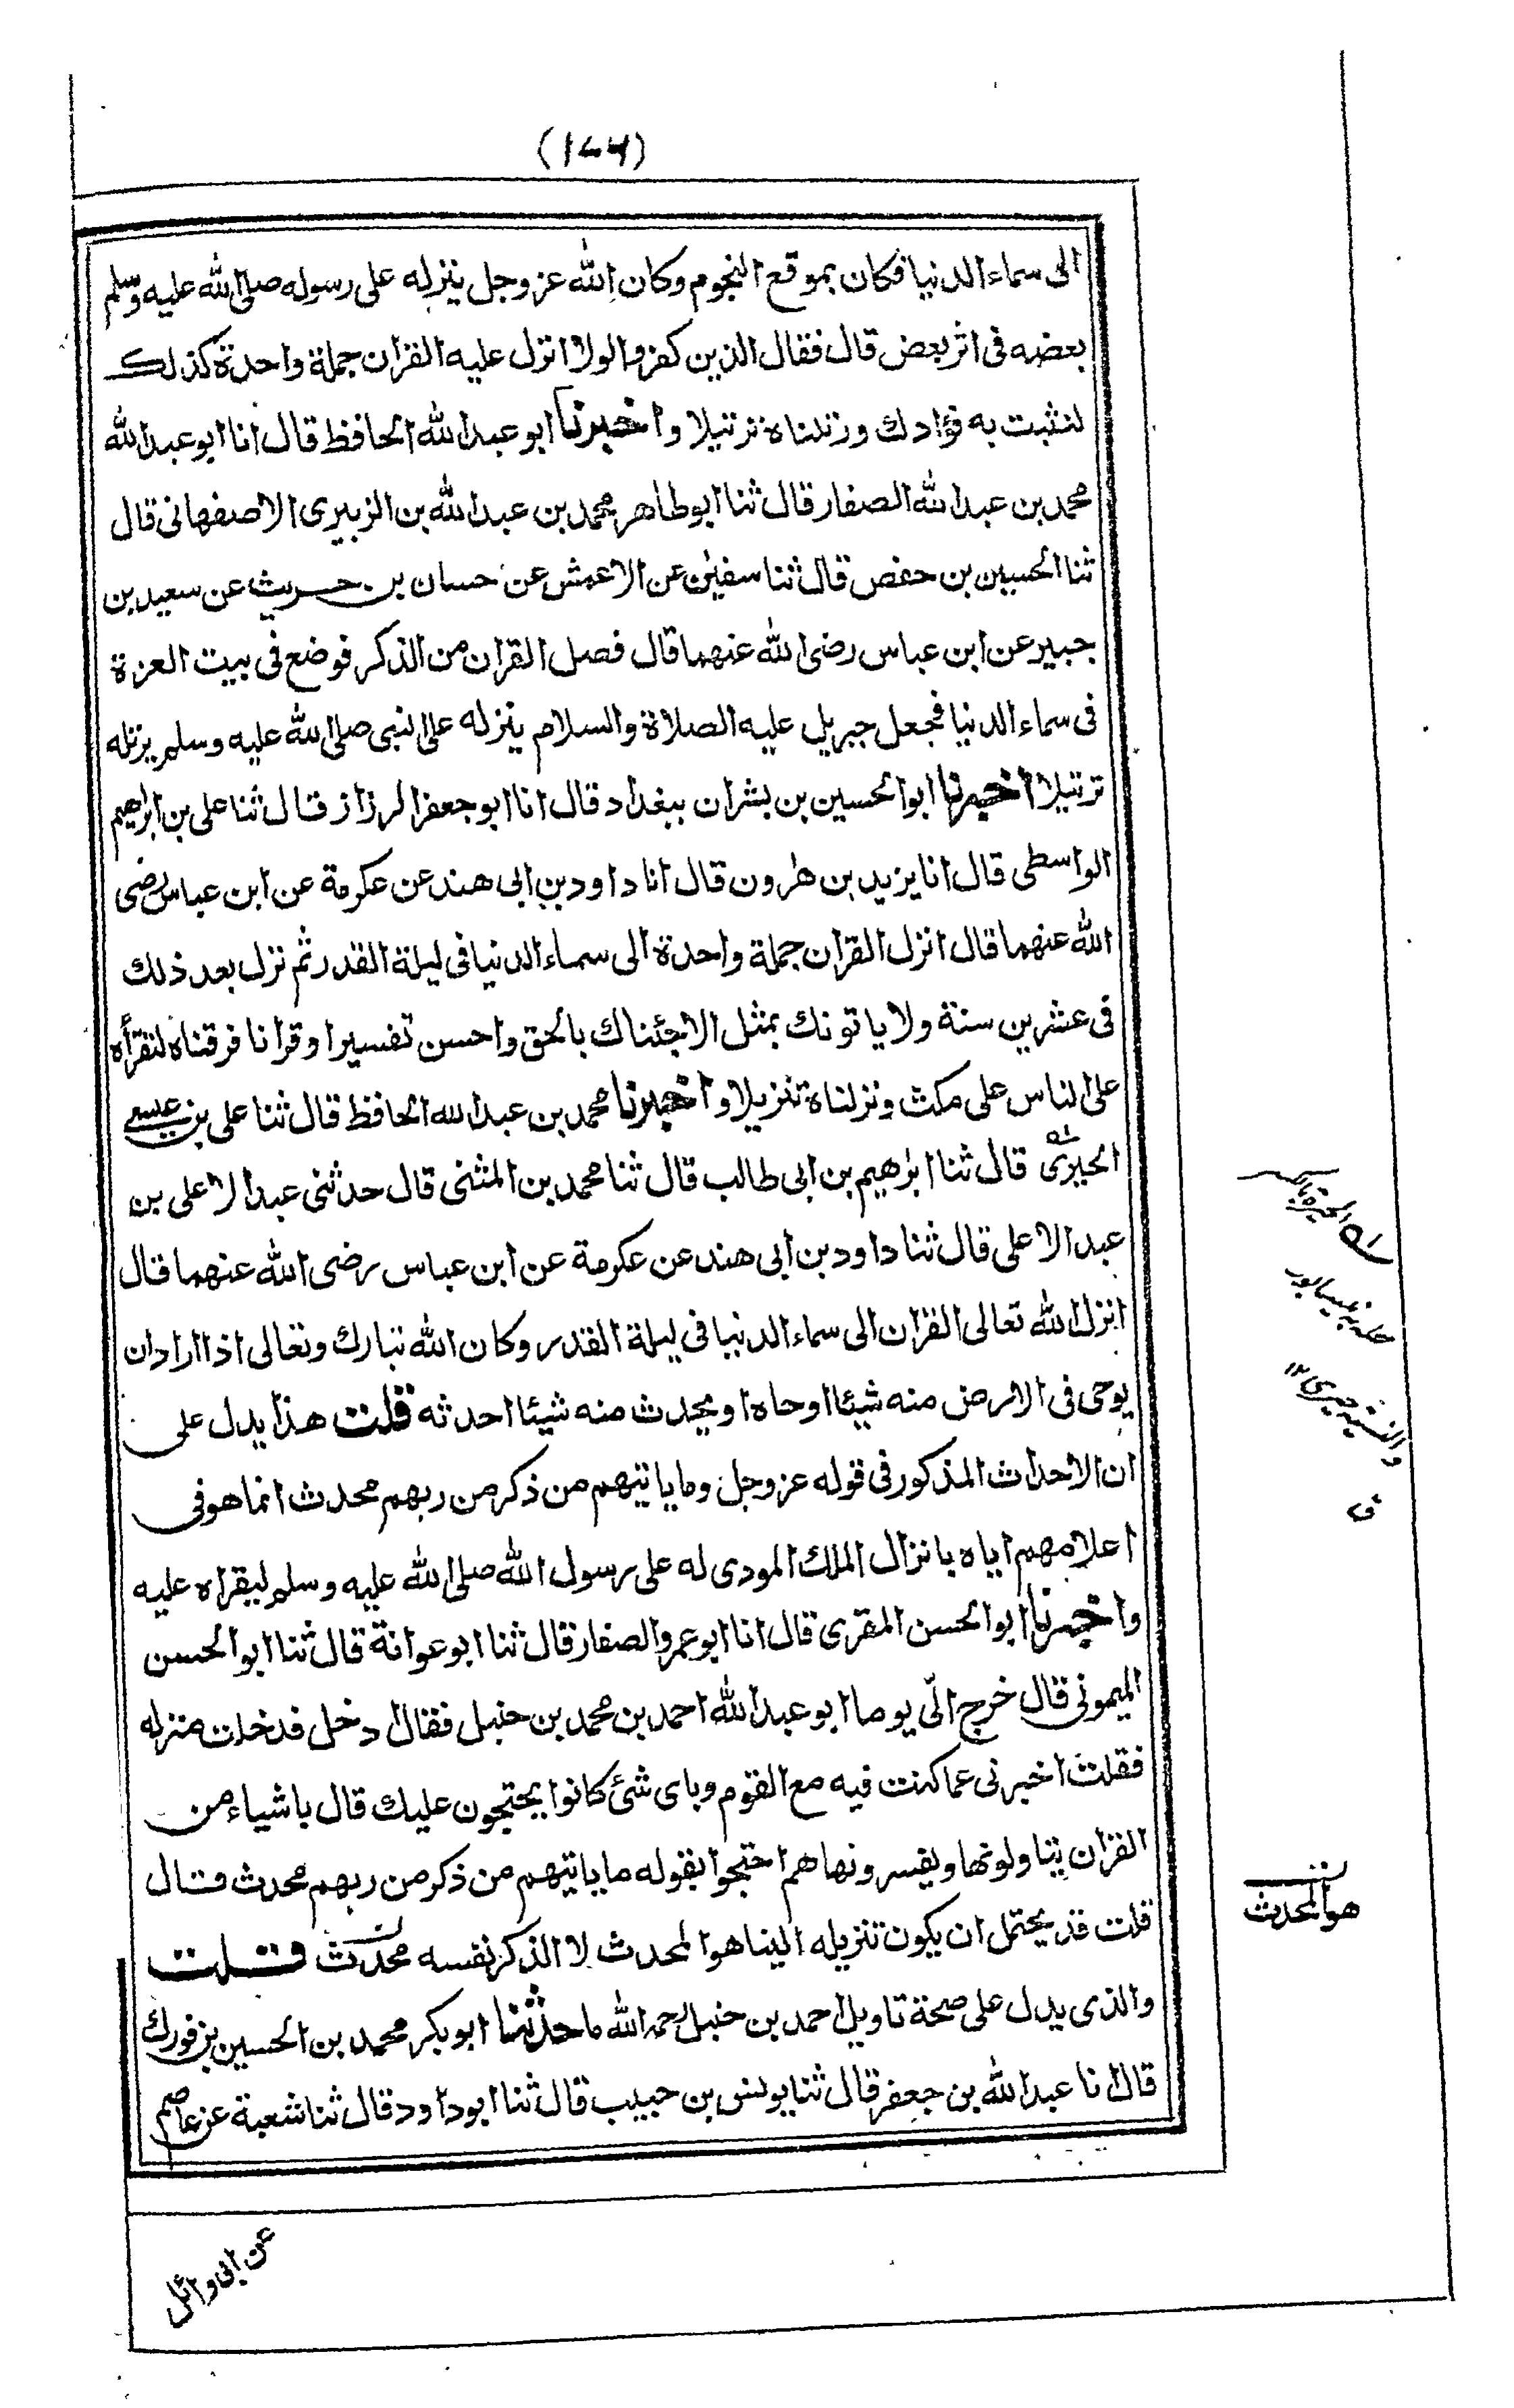 (١٧٦)
الى سماء الدنيا فكان بموقع النجوم وكان الله عز وجل ينزله على رسوله صلى الله عليه وسلم
بعضه فى اثر بعض قال فقال الذين كفروا لولا انزل عليه القران جملة واحدة كذلك
لنثبت به فؤادك ورتلناه ترتيلا واخبرنا ابو عبد الله الحافظ قال انا ابو عبد الله
محمد بن عبد الله الصفار قال ثنا ابو طاهر محمد بن عبد الله بن الزبيرى الاصفهانى قال
ثنا الحسين بن حفص قال ثنا سفين عن الاعمش عن حسان بن حريث عن سعيد بن
جبير عن ابن عباس رضى الله عنهما قال فصل القران من الذكر فوضع فى بيت العزة
فى سماء الدنيا فجعل جبريل عليه الصلاة والسلام ينزله على النبى صلى الله عليه وسلم يرتله
ترتيلا اخبرنا ابو الحسين بن بشران ببغداد قال انا ابو جعفر الرزاز قال ثنا على بن ابراهيم
الواسطى قال انا يزيد بن هٰرون قال انا داود بن ابى هند عن عكرمة عن ابن عباس رضى
الله عنهما قال انزل القران جملة واحدة الى سماء الدنيا فى ليلة القدر ثم نزل بعد ذلك
فى عشرين سنة ولا ياتونك بمثل الا جئناك بالحق واحسن تفسيرا وقرانا فرقناه لتقرأه
على الناس على مكث ونزلناه تنزيلا واخبرنا محمد بن عبد الله الحافظ قال ثنا على بن عيسے
الحيرى قال ثنا ابرٰهيم بن ابى طالب قال ثنا محمد بن المثنى قال حدثنى عبد الاعلى بن
عبد الاعلى قال ثنا داود بن ابى هند عن عكرمة عن ابن عباس رضى الله عنهما قال
انزل الله تعالى القران الى سماء الدنيا فى ليلة القدر وكان الله تبارك وتعالى اذا اراد ان
يوحى فى الارض منه شيئا اوحاه او يحدث منه شيئا احدثه قلت هذا يدل على
ان الاحداث المذكور فى قوله عز وجل وما ياتيهم من ذكر من ربهم محدث انما هو فى
اعلامهم اياه بانزال الملك المودى له على رسول الله صلى الله عليه وسلم ليقراه عليه
واخبرنا ابو الحسن المقرى قال انا ابو عمرو الصفار قال ثنا ابو عوانة قال ثنا ابو الحسن
الميمونى قال خرج الىّ يوما ابو عبد الله احمد بن محمد بن حنبل فقال ادخل فدخلت منزله
فقلت اخبرنى عما كنت فيه مع القوم وباى شئ كانوا يحتجون عليك قال باشياء من
القران يتاولونها ويفسرونها هم احتجوا بقوله ما ياتيهم من ذكر من ربهم محدث قال
قلت قد يحتمل ان يكون تنزيله الينا هو المحدث لا الذكر نفسه محدث قلت
والذى يدل على صحة تاويل احمد بن حنبل رحمه الله ما حدثنا ابو بكر محمد بن الحسين بن فورك
قال انا عبد الله بن جعفر قال ثنا يونس بن حبيب قال ثنا ابو داود قال ثنا شعبة عن عاصم
عن ابى وائل
له الحيرة بالكسر
محلة بنيسابور
والنسبة حيرى ١٢
ق
هو المحدث